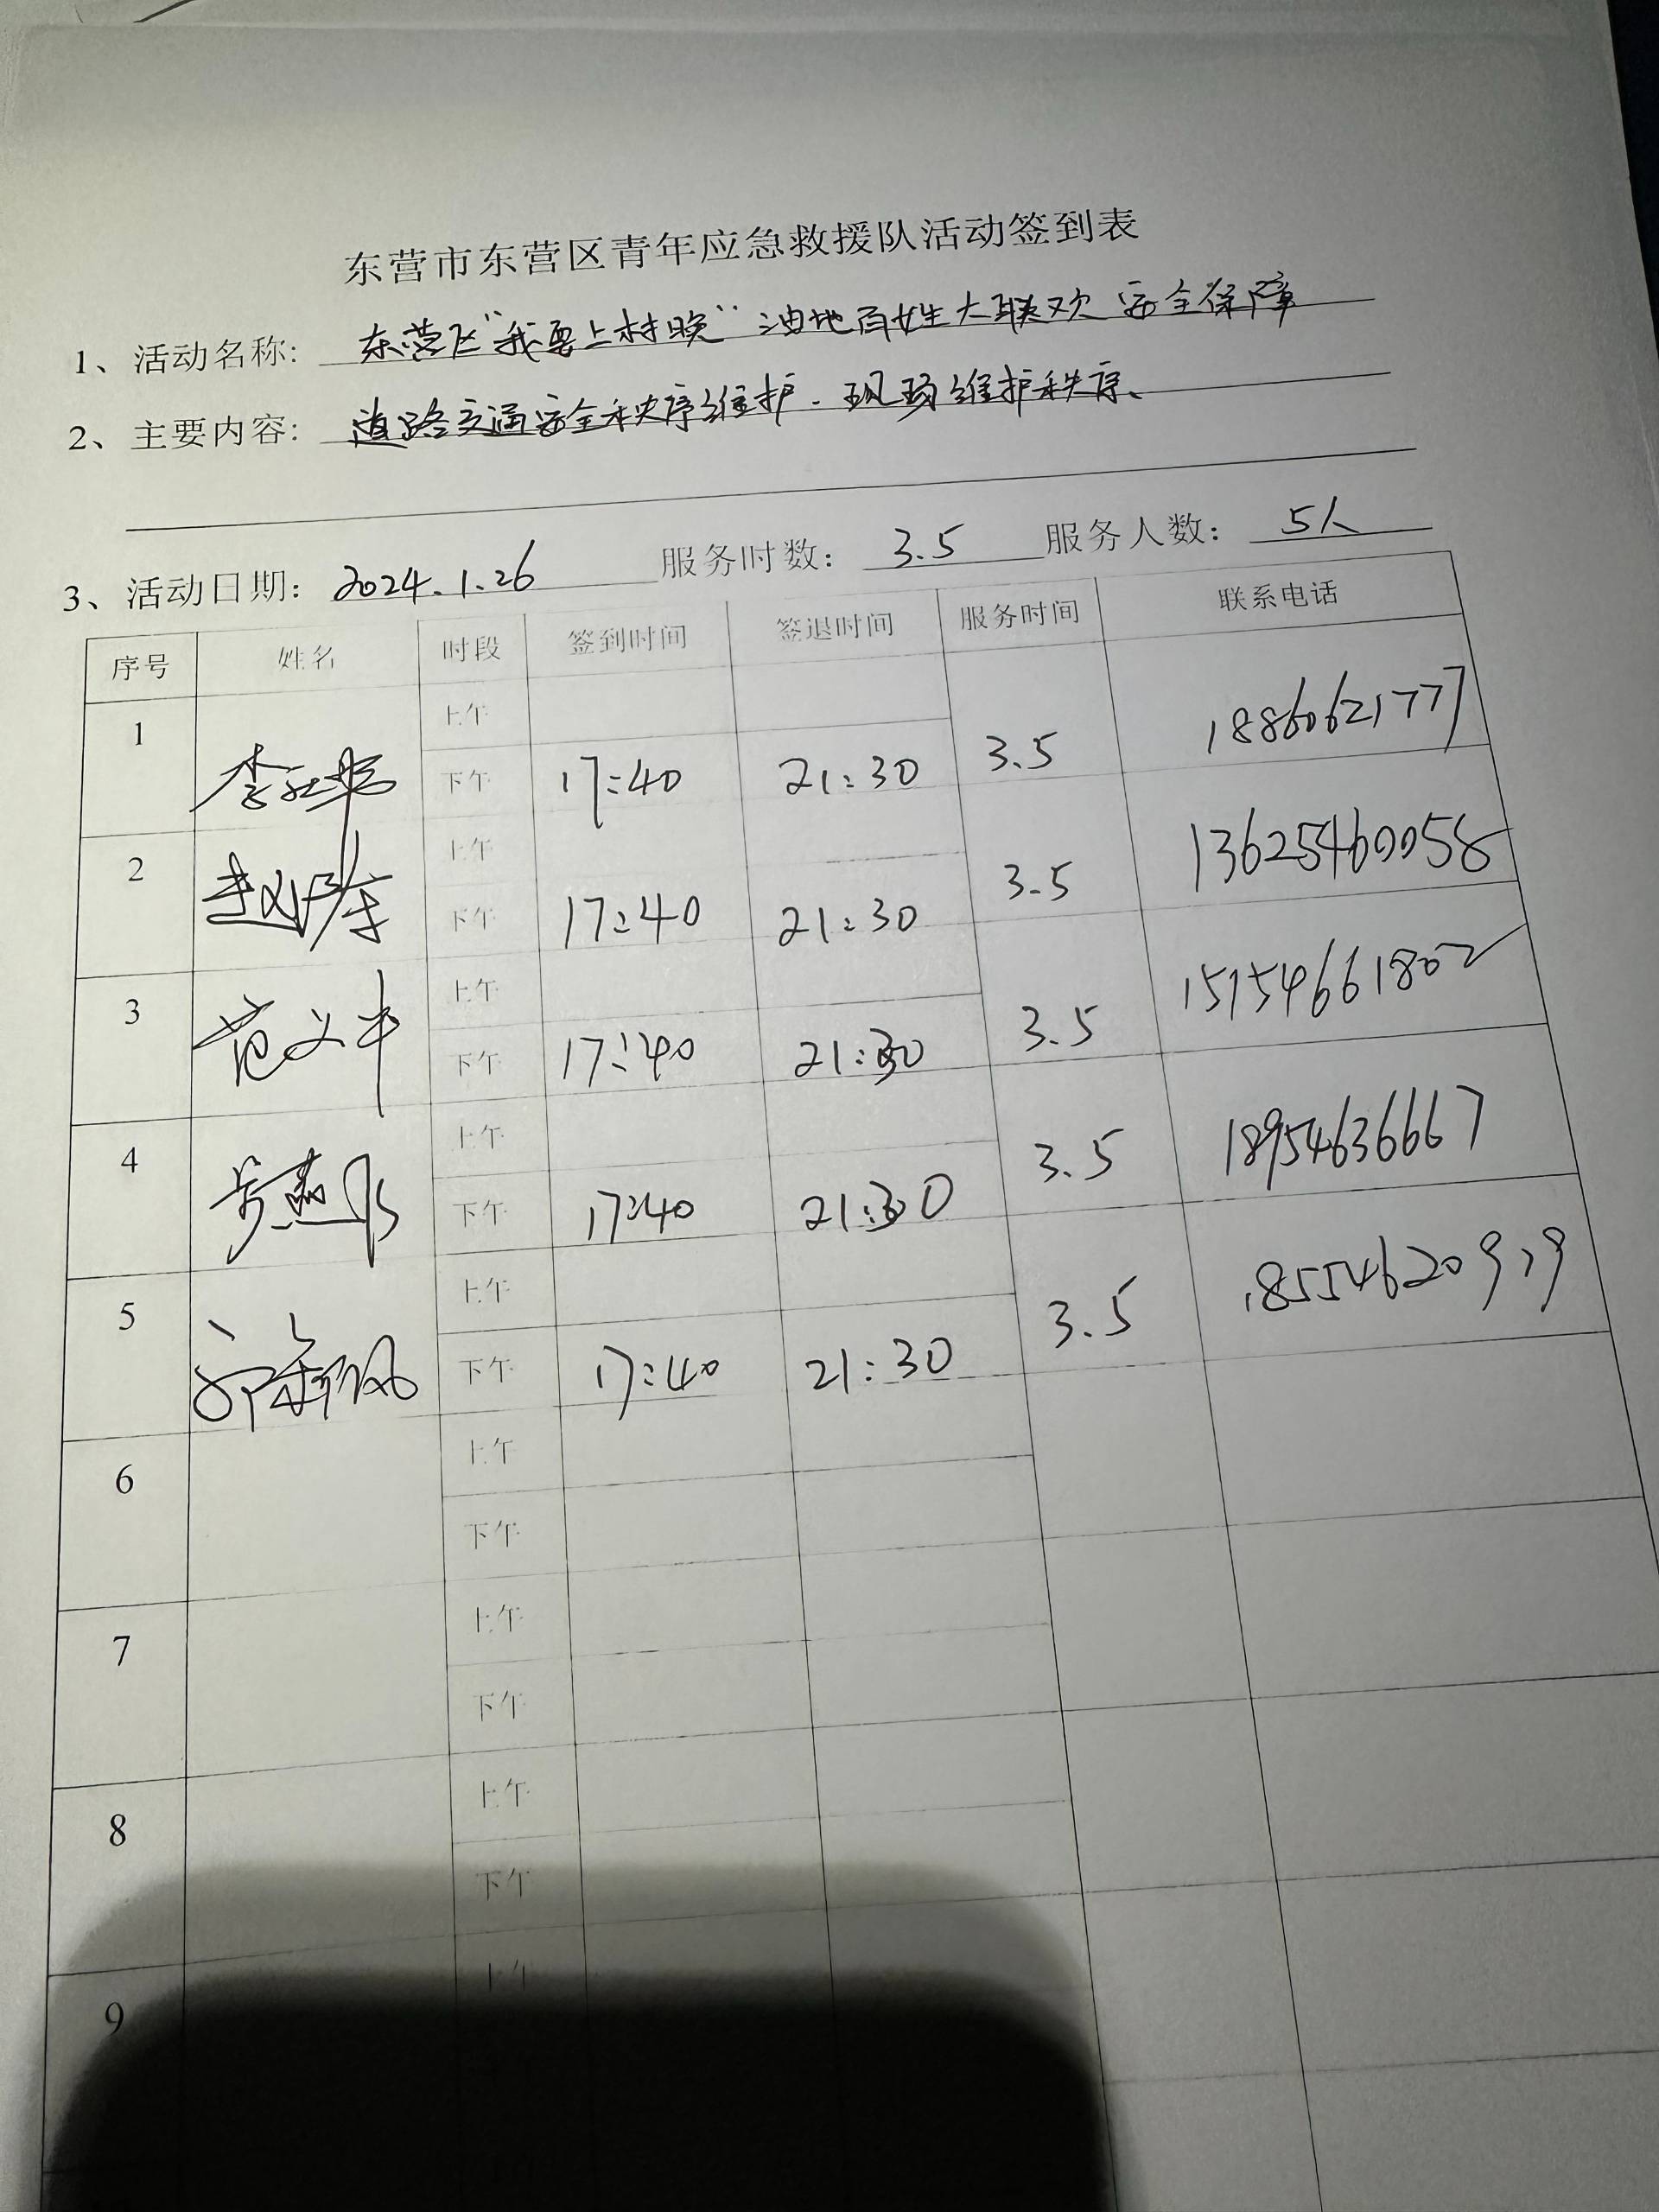 东营市东营区青年应急救援队活动签到表
1、活动名称: 东营区“我要上村晚”油地百姓大联欢 安全保障
2、主要内容: 道路交通安全秩序维护. 现场维护秩序、
3、活动日期: 2024.1.26 服务时数: 3.5 服务人数: 5人
序号 姓名 时段 签到时间 签退时间 服务时间 联系电话
1 上午
下午 17:40 21:30 3.5 18860621777
2 上午
下午 17:40 21:30 3.5 13625460058
3 范义牛 上午
下午 17:40 21:30 3.5 15154661802
4 上午
下午 17:40 21:30 3.5 18954636667
5 上午
下午 17:40 21:30 3.5 18554620919
6 上午
下午
7 上午
下午
8 上午
下午
9 上午